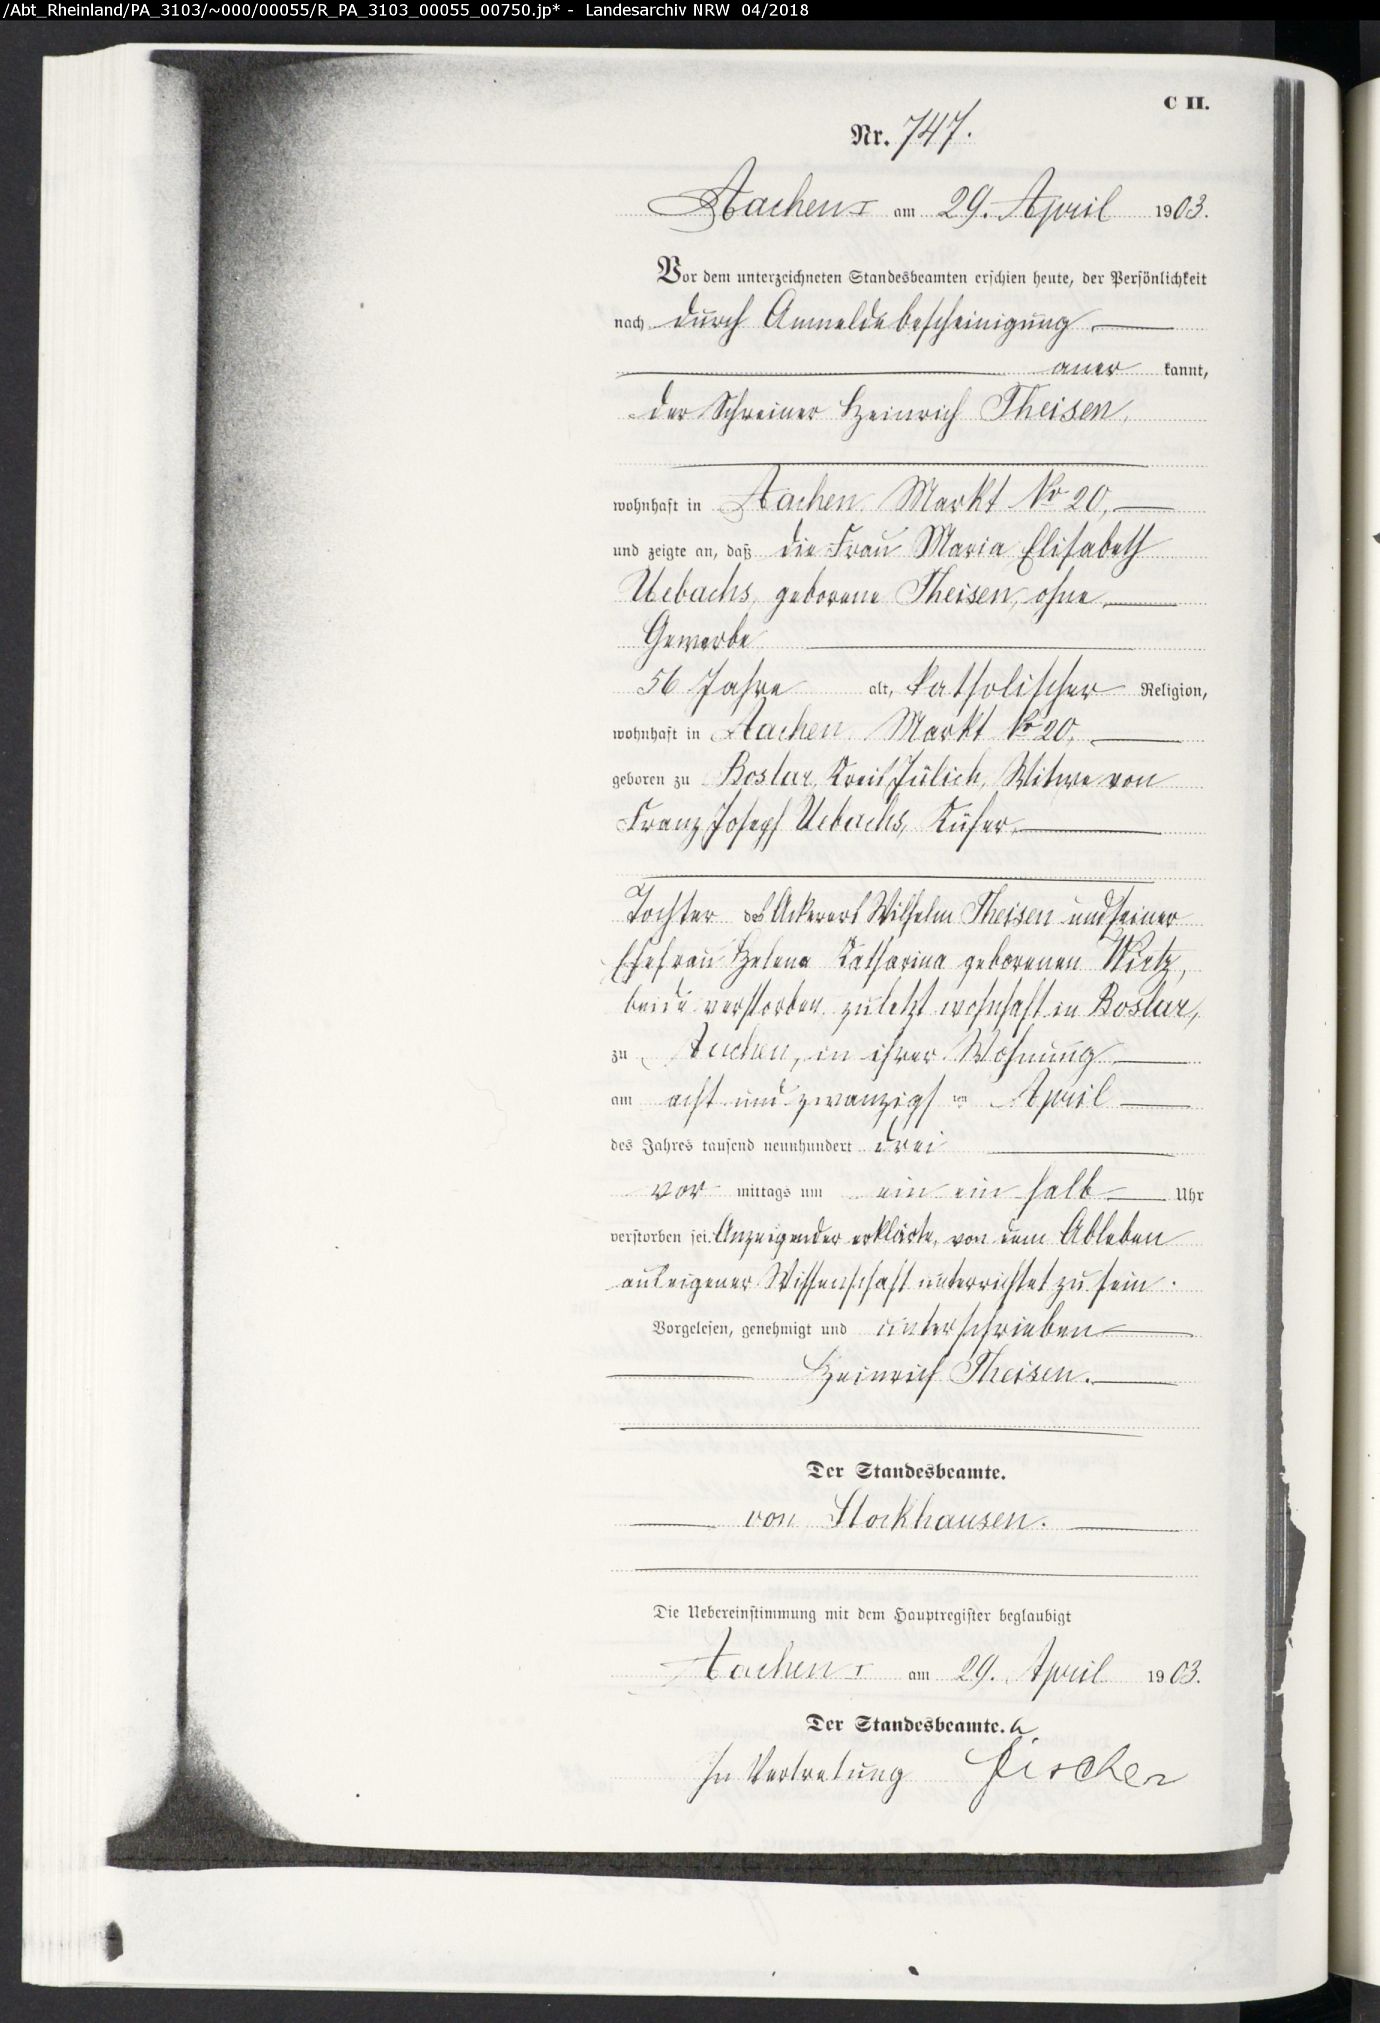 /Abt_Rheinland/PA_3103/~000/00055/R_PA_3103_00055_00750.jp* - Landesarchiv NRW 04/2018
C II.
Nr. 747.
Aachen I am 29. April 1903.
Vor dem unterzeichneten Standesbeamten erschien heute, der Persönlichkeit
nach durch Anmeldebescheinigung
aner kannt,
der Schreiner Heinrich Theisen,
wohnhaft in Aachen, Markt No 20,
und zeigte an, daß die Frau Maria Elisabeth
Uebachs, geborene Theisen, ohne
Gewerbe
56 Jahre alt, katholischer Religion,
wohnhaft in Aachen, Markt No 20,
geboren zu Boslar, Kreis Jülich, Witwe von
Franz Joseph Uebachs, Küfer,
Tochter des Ackerers Wilhelm Theisen und seiner
Ehefrau Helena Katharina geborenen Wirtz,
beide verstorben, zuletzt wohnhaft in Boslar,
zu Aachen, in ihrer Wohnung
am acht und zwanzigsten April
des Jahres tausend neunhundert drei
vor mittags um ein ein halb Uhr
verstorben sei. Anzeigender erklärte, von dem Ableben
aus eigener Wissenschaft unterrichtet zu sein.
Vorgelesen, genehmigt und unterschrieben
Heinrich Theisen.
Der Standesbeamte.
von Stockhausen.
Die Uebereinstimmung mit dem Hauptregister beglaubigt
Aachen I am 29. April 1903.
Der Standesbeamte.
In Vertretung Fischer